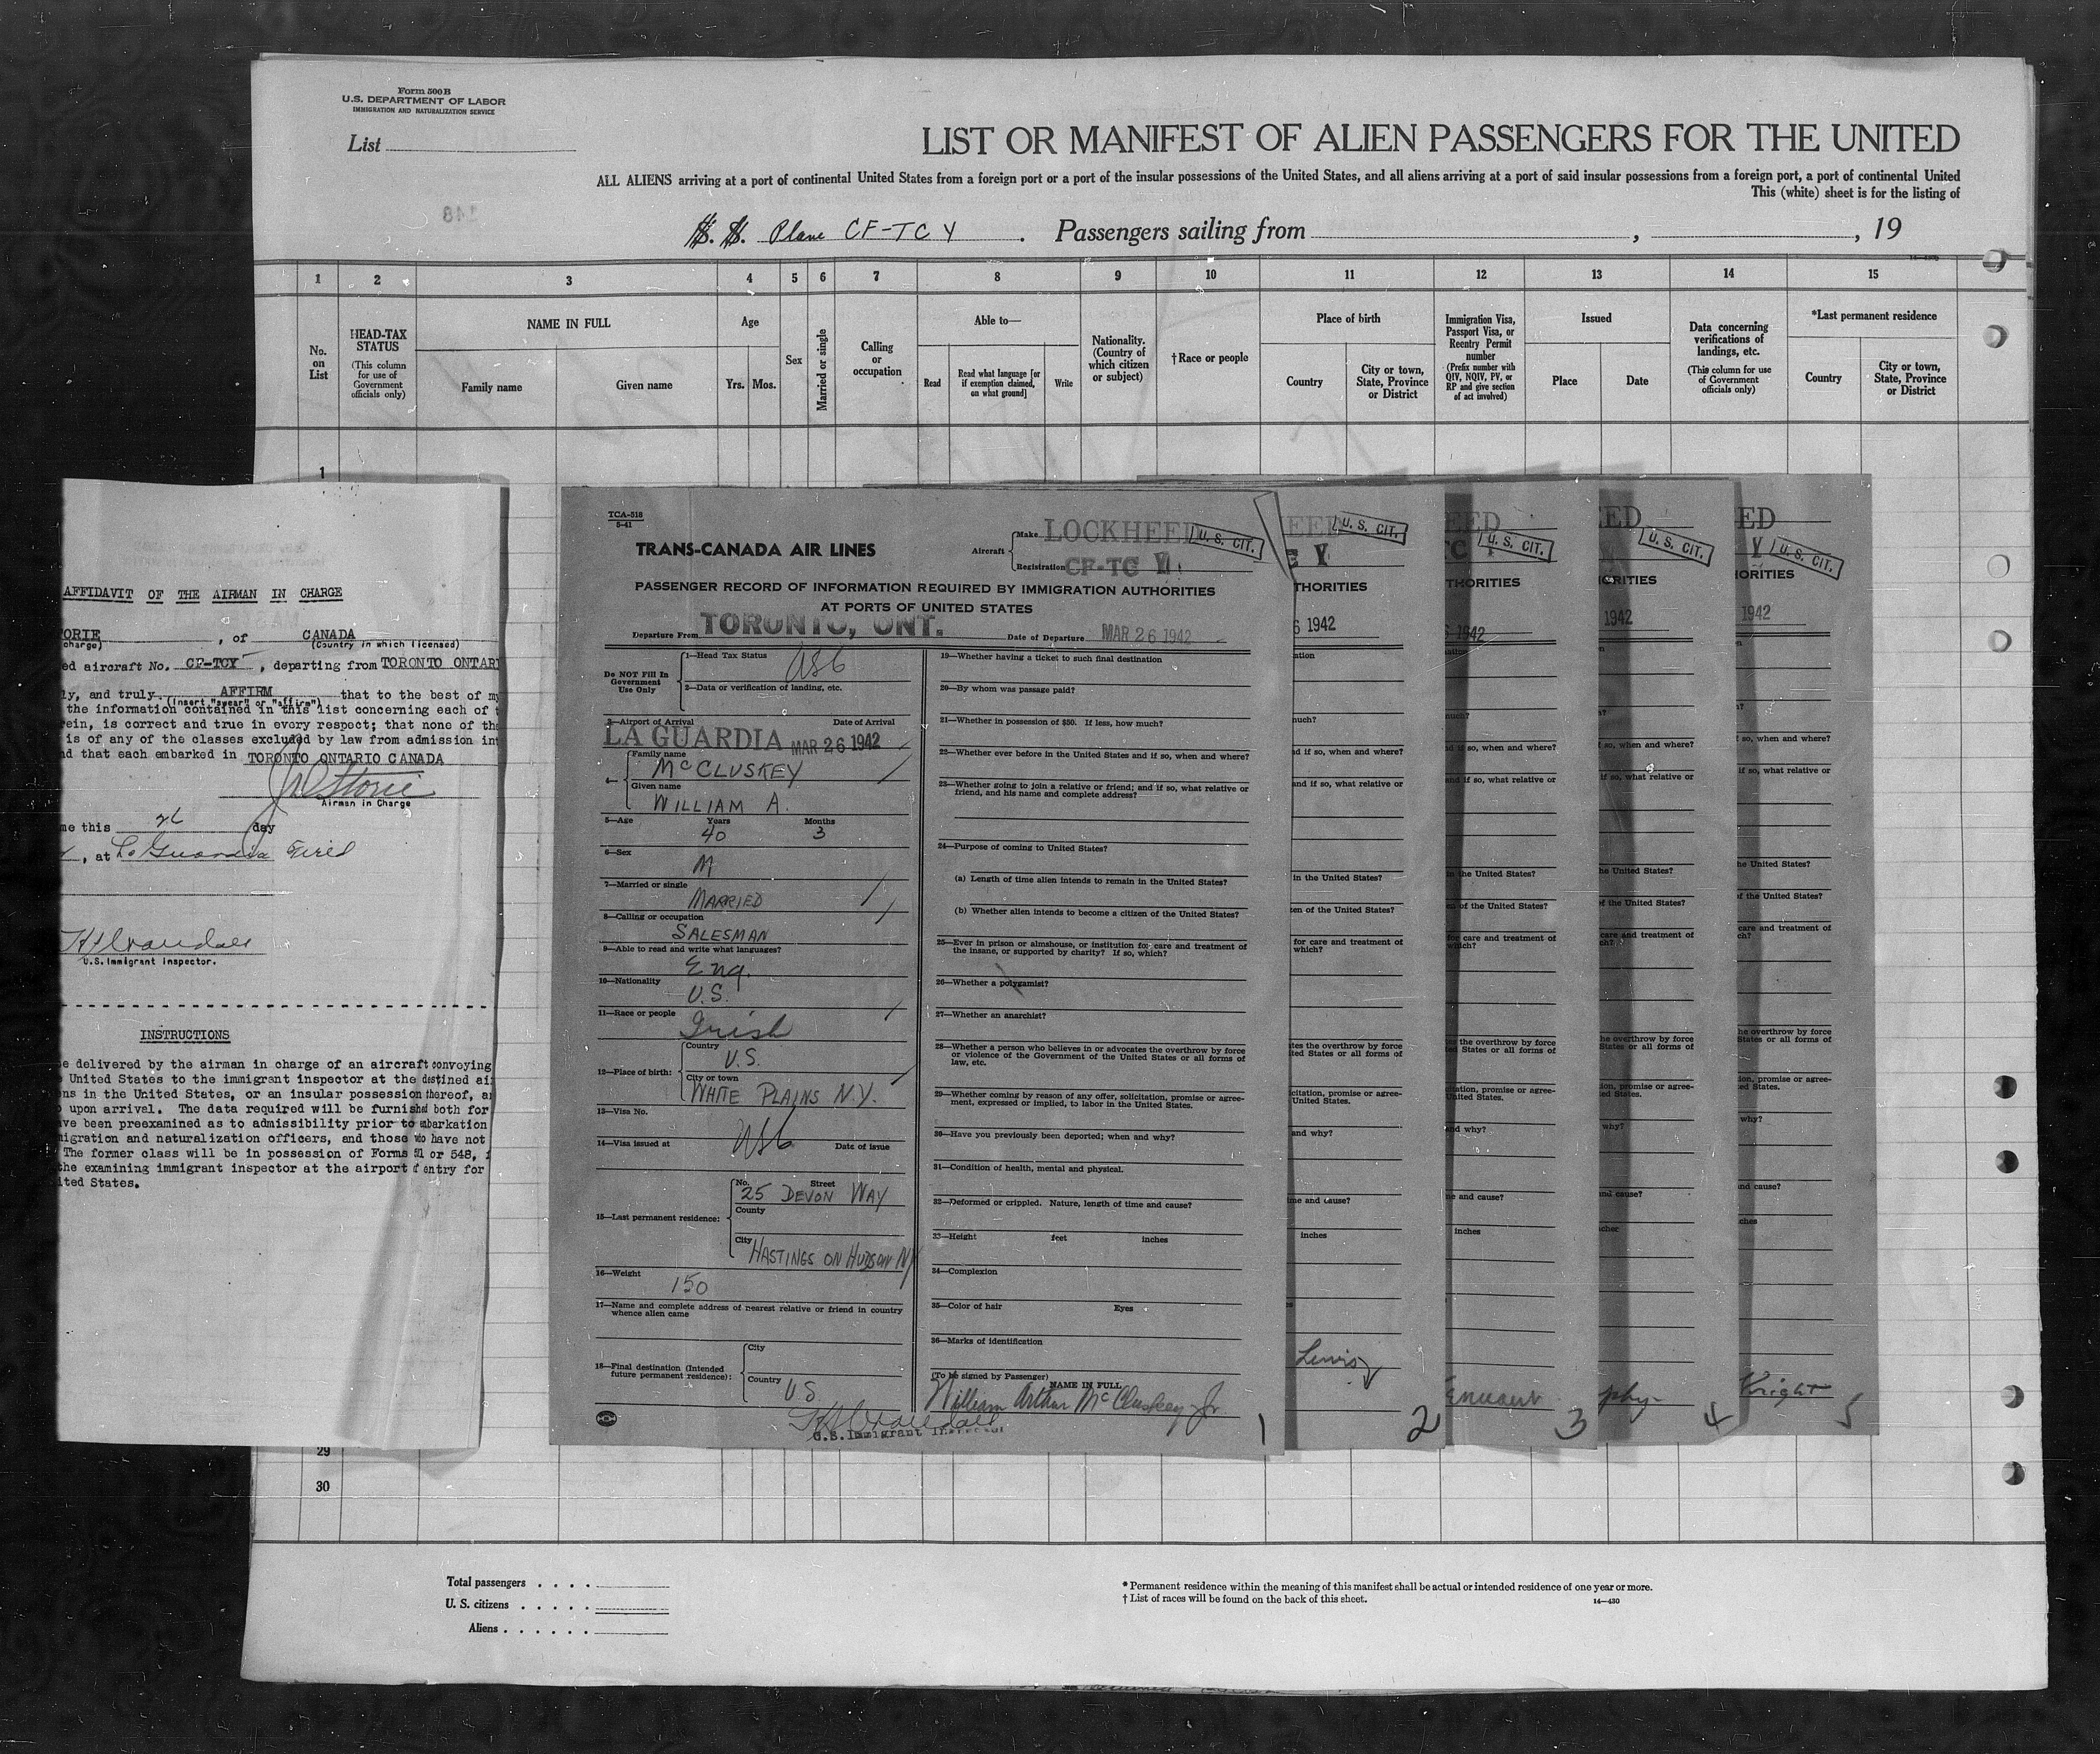 Form 500 B
U.S. DEPARTMENT OF LABOR
IMMIGRATION AND NATURALIZATION SERVICE
List
LIST OR MANIFEST OF ALIEN PASSENGERS FOR THE UNITED
ALL ALIENS arriving at a port of continental United States from a foreign port or a port of the insular possessions of the United States, and all aliens arriving at a port of said insular possessions from a foreign port, a port of continental United
This (white) sheet is for the listing of
S. S. Plane CF-TCY. Passengers sailing from , , 19
1 2 3 4 5 6 7 8 9 10 11 12 13 14 15
No. on List
HEAD-TAX STATUS
(This column for use of Government officials only)
NAME IN FULL
Family name Given name
Age
Yrs. Mos.
Sex
Married or single
Calling or occupation
Able to—
Read
Read what language [or if exemption claimed, on what ground]
Write
Nationality. (Country of which citizen or subject)
†Race or people
Place of birth
Country
City or town, State, Province or District
Immigration Visa, Passport Visa, or Reentry Permit number
(Prefix number with QIV, NQIV, PV, or RP and give section of act involved)
Issued
Place Date
Data concerning verifications of landings, etc.
(This column for use of Government officials only)
*Last permanent residence
Country
City or town, State, Province or District
1
AFFIDAVIT OF THE AIRMAN IN CHARGE
ORIE , of CANADA
charge) (Country in which licensed)
ed aircraft No. CF-TCY , departing from TORONTO ONTAR
ly, and truly AFFIRM that to the best of my
(insert "swear" or "affirm")
the information contained in this list concerning each of t
rein, is correct and true in every respect; that none of the
is of any of the classes excluded by law from admission int
nd that each embarked in TORONTO ONTARIO CANADA
Airman in Charge
me this 26 day
, at La Guardia Field
U.S. Immigrant Inspector.
INSTRUCTIONS
be delivered by the airman in charge of an aircraft conveying
United States to the immigrant inspector at the destined ai
ns in the United States, or an insular possession thereof, a
upon arrival. The data required will be furnished both for
ave been preexamined as to admissibility prior to embarkation
migration and naturalization officers, and those who have not
The former class will be in possession of Forms or 548,
the examining immigrant inspector at the airport of entry for
ited States.
TCA-518
5-41
TRANS-CANADA AIR LINES
Aircraft
Make LOCKHEED
Registration CF-TC Y
U. S. CIT.
PASSENGER RECORD OF INFORMATION REQUIRED BY IMMIGRATION AUTHORITIES
AT PORTS OF UNITED STATES
Departure From TORONTO, ONT. Date of Departure MAR 26 1942
Do NOT Fill In Government Use Only
1—Head Tax Status
2—Data or verification of landing, etc.
3—Airport of Arrival Date of Arrival
LA GUARDIA MAR 26 1942
4—
Family name
McCLUSKEY
Given name
WILLIAM A.
5—Age Years Months
40 3
6—Sex
M
7—Married or single
MARRIED
8—Calling or occupation
SALESMAN
9—Able to read and write what languages?
Eng.
10—Nationality
U.S.
11—Race or people
Irish
12—Place of birth:
Country
U.S.
City or town
WHITE PLAINS N.Y.
13—Visa No.
14—Visa issued at Date of issue
15—Last permanent residence:
No. Street
25 DEVON WAY
County
City HASTINGS ON HUDSON NY
16—Weight
150
17—Name and complete address of nearest relative or friend in country whence alien came
18—Final destination (Intended future permanent residence):
City
Country US
U.S. Immigrant Inspector
19—Whether having a ticket to such final destination
20—By whom was passage paid?
21—Whether in possession of $50. If less, how much?
22—Whether ever before in the United States and if so, when and where?
23—Whether going to join a relative or friend; and if so, what relative or friend, and his name and complete address?
24—Purpose of coming to United States?
(a) Length of time alien intends to remain in the United States?
(b) Whether alien intends to become a citizen of the United States?
25—Ever in prison or almshouse, or institution for care and treatment of the insane, or supported by charity? If so, which?
26—Whether a polygamist?
27—Whether an anarchist?
28—Whether a person who believes in or advocates the overthrow by force or violence of the Government of the United States or all forms of law, etc.
29—Whether coming by reason of any offer, solicitation, promise or agreement, expressed or implied, to labor in the United States.
30—Have you previously been deported; when and why?
31—Condition of health, mental and physical.
32—Deformed or crippled. Nature, length of time and cause?
33—Height feet inches
34—Complexion
35—Color of hair Eyes
36—Marks of identification
(To be signed by Passenger) NAME IN FULL
William Arthur McCluskey Jr.
1
EED
U. S. CIT.
E Y
THORITIES
6 1942
Lewis
2
EED
U. S. CIT.
THORITIES
1942
3
ED
U. S. CIT.
ORITIES
1942
phy
4
ED
U. S. CIT.
Y
IORITIES
1942
Knight
5
29
30
Total passengers
U. S. citizens
Aliens
* Permanent residence within the meaning of this manifest shall be actual or intended residence of one year or more.
† List of races will be found on the back of this sheet.
14—430